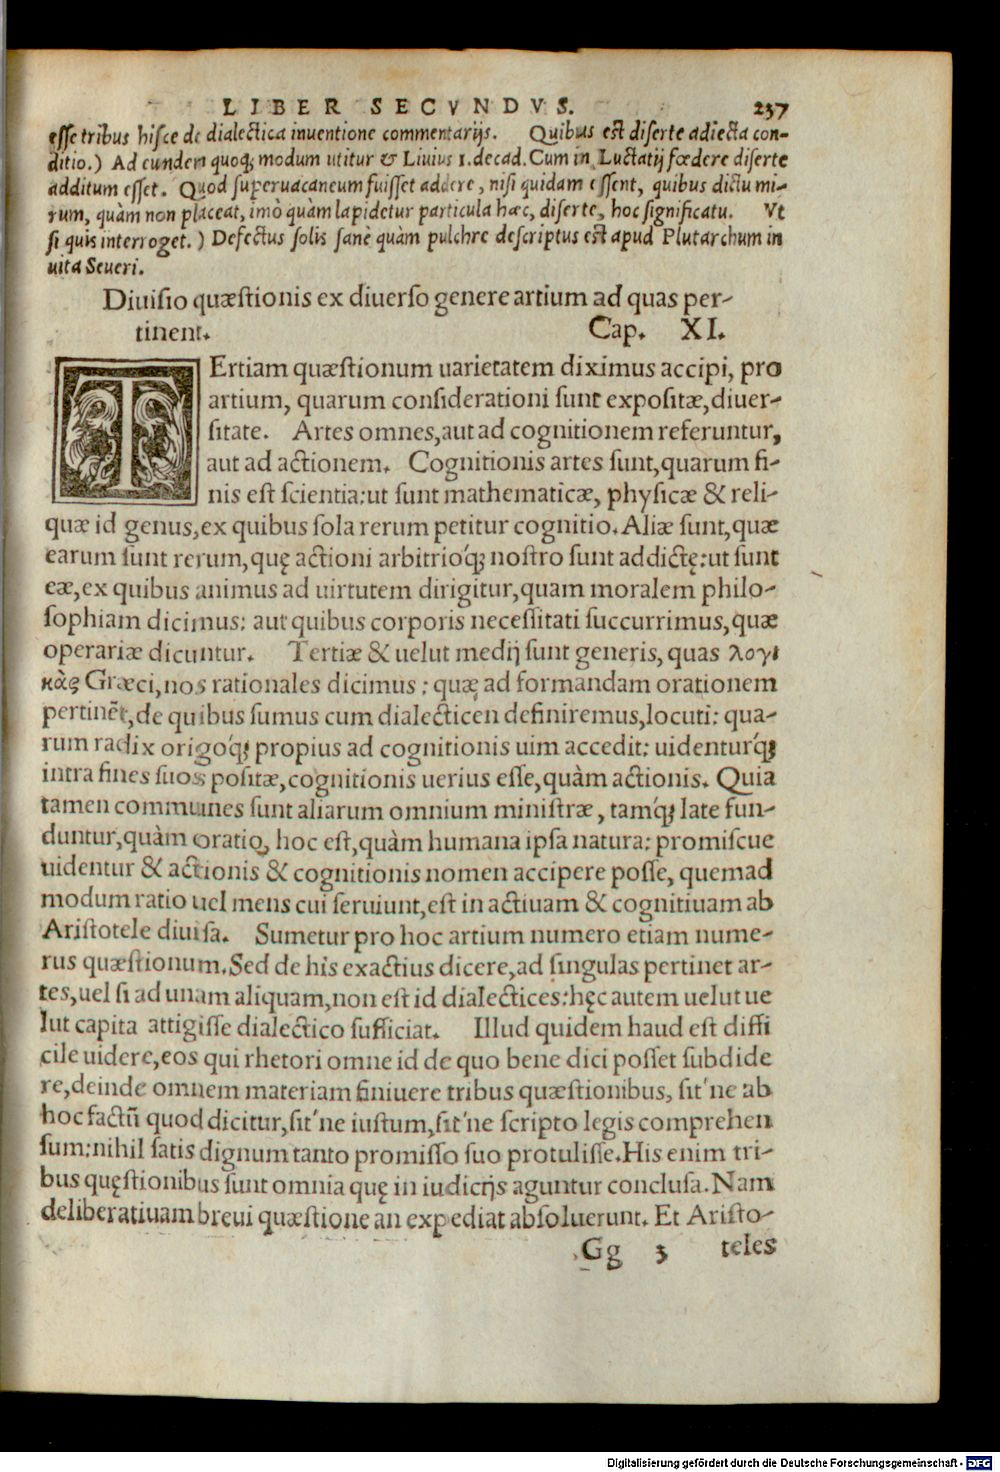 LIBER SECVNDVS. 237
esse tribus hisce de dialectica inuentione commentarijs. Quibus est diserte adiecta con-
ditio.) Ad eundem quoq; modum utitur & Liuius 1. decad. Cum in Luctatij fœdere diserte
additum esset. Quod superuacaneum fuisset addere, nisi quidam essent, quibus dictu mi-
rum, quàm non placeat, imò quàm lapidetur particula hæc, diserte, hoc significatu. Vt
si quis interroget.) Defectus solis sanè quàm pulchre descriptus est apud Plutarchum in
uita Seueri.
Diuisio quæstionis ex diuerso genere artium ad quas per-
tinent. Cap. XI.
TErtiam quæstionum uarietatem diximus accipi, pro
artium, quarum considerationi sunt expositæ, diuer-
sitate. Artes omnes, aut ad cognitionem referuntur,
aut ad actionem. Cognitionis artes sunt, quarum fi-
nis est scientia: ut sunt mathematicæ, physicæ & reli-
quæ id genus, ex quibus sola rerum petitur cognitio. Aliæ sunt, quæ
earum sunt rerum, quę actioni arbitrio'q; nostro sunt addictę: ut sunt
eæ, ex quibus animus ad uirtutem dirigitur, quam moralem philo-
sophiam dicimus: aut quibus corporis necessitati succurrimus, quæ
operariæ dicuntur. Tertiæ & uelut medij sunt generis, quas λογι
κὰς Græci, nos rationales dicimus: quæ ad formandam orationem
pertinẽt, de quibus sumus cum dialecticen definiremus, locuti: qua-
rum radix origo'q; propius ad cognitionis uim accedit: uidentur'q;
intra fines suos positæ, cognitionis uerius esse, quàm actionis. Quia
tamen communes sunt aliarum omnium ministræ, tam'q; late fun-
duntur, quàm oratio, hoc est, quàm humana ipsa natura: promiscue
uidentur & actionis & cognitionis nomen accipere posse, quemad
modum ratio uel mens cui seruiunt, est in actiuam & cognitiuam ab
Aristotele diuisa. Sumetur pro hoc artium numero etiam nume-
rus quæstionum. Sed de his exactius dicere, ad singulas pertinet ar-
tes, uel si ad unam aliquam, non est id dialectices: hęc autem uelut ue
lut capita attigisse dialectico sufficiat. Illud quidem haud est diffi
cile uidere, eos qui rhetori omne id de quo bene dici posset subdide
re, deinde omnem materiam finiuere tribus quæstionibus, sit'ne ab
hoc factũ quod dicitur, sit'ne iustum, sit'ne scripto legis comprehen
sum: nihil satis dignum tanto promisso suo protulisse. His enim tri-
bus quęstionibus sunt omnia quę in iudicijs aguntur conclusa. Nam
deliberatiuam breui quæstione an expediat absoluerunt. Et Aristo-
Gg 3 teles
Digitalisierung gefördert durch die Deutsche Forschungsgemeinschaft - DFG